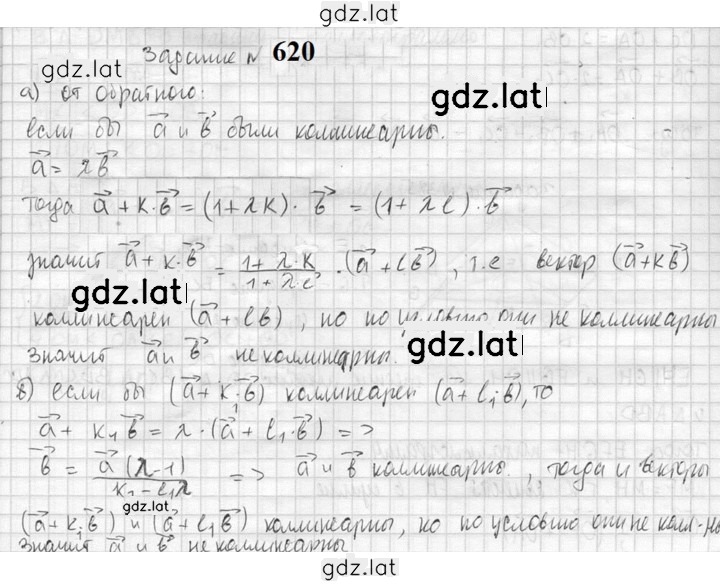 gdz.lat
Задание № 620
gdz.lat
а) от обратного:
gdz.lat
если бы a⃗ и b⃗ были коллинеарны.
a⃗ = λb⃗
тогда a⃗ + k·b⃗ = (1+λk)·b⃗ = (1+λl)·b⃗
значит a⃗ + k·b⃗ = (1+λ·k)/(1+λ·l) · (a⃗ + lb⃗), т.е вектор (a⃗+kb⃗)
gdz.lat
коллинеарен (a⃗ + lb), но по условию они не коллинеарны
gdz.lat
значит a⃗ и b⃗ не коллинеарны.
б) если бы (a⃗ + k₁·b⃗) коллинеарен (a⃗ + l₁b⃗), то
a⃗ + k₁b⃗ = λ·(a⃗ + l₁·b⃗) =>
b⃗ = a⃗(λ-1)/(k₁-l₁λ) => a⃗ и b⃗ коллинеарны., тогда и векторы
gdz.lat
(a⃗+k₁b⃗) и (a⃗+l₁b⃗) коллинеарны, но по условию они не колл-ны
значит a⃗ и b⃗ не коллинеарны
gdz.lat